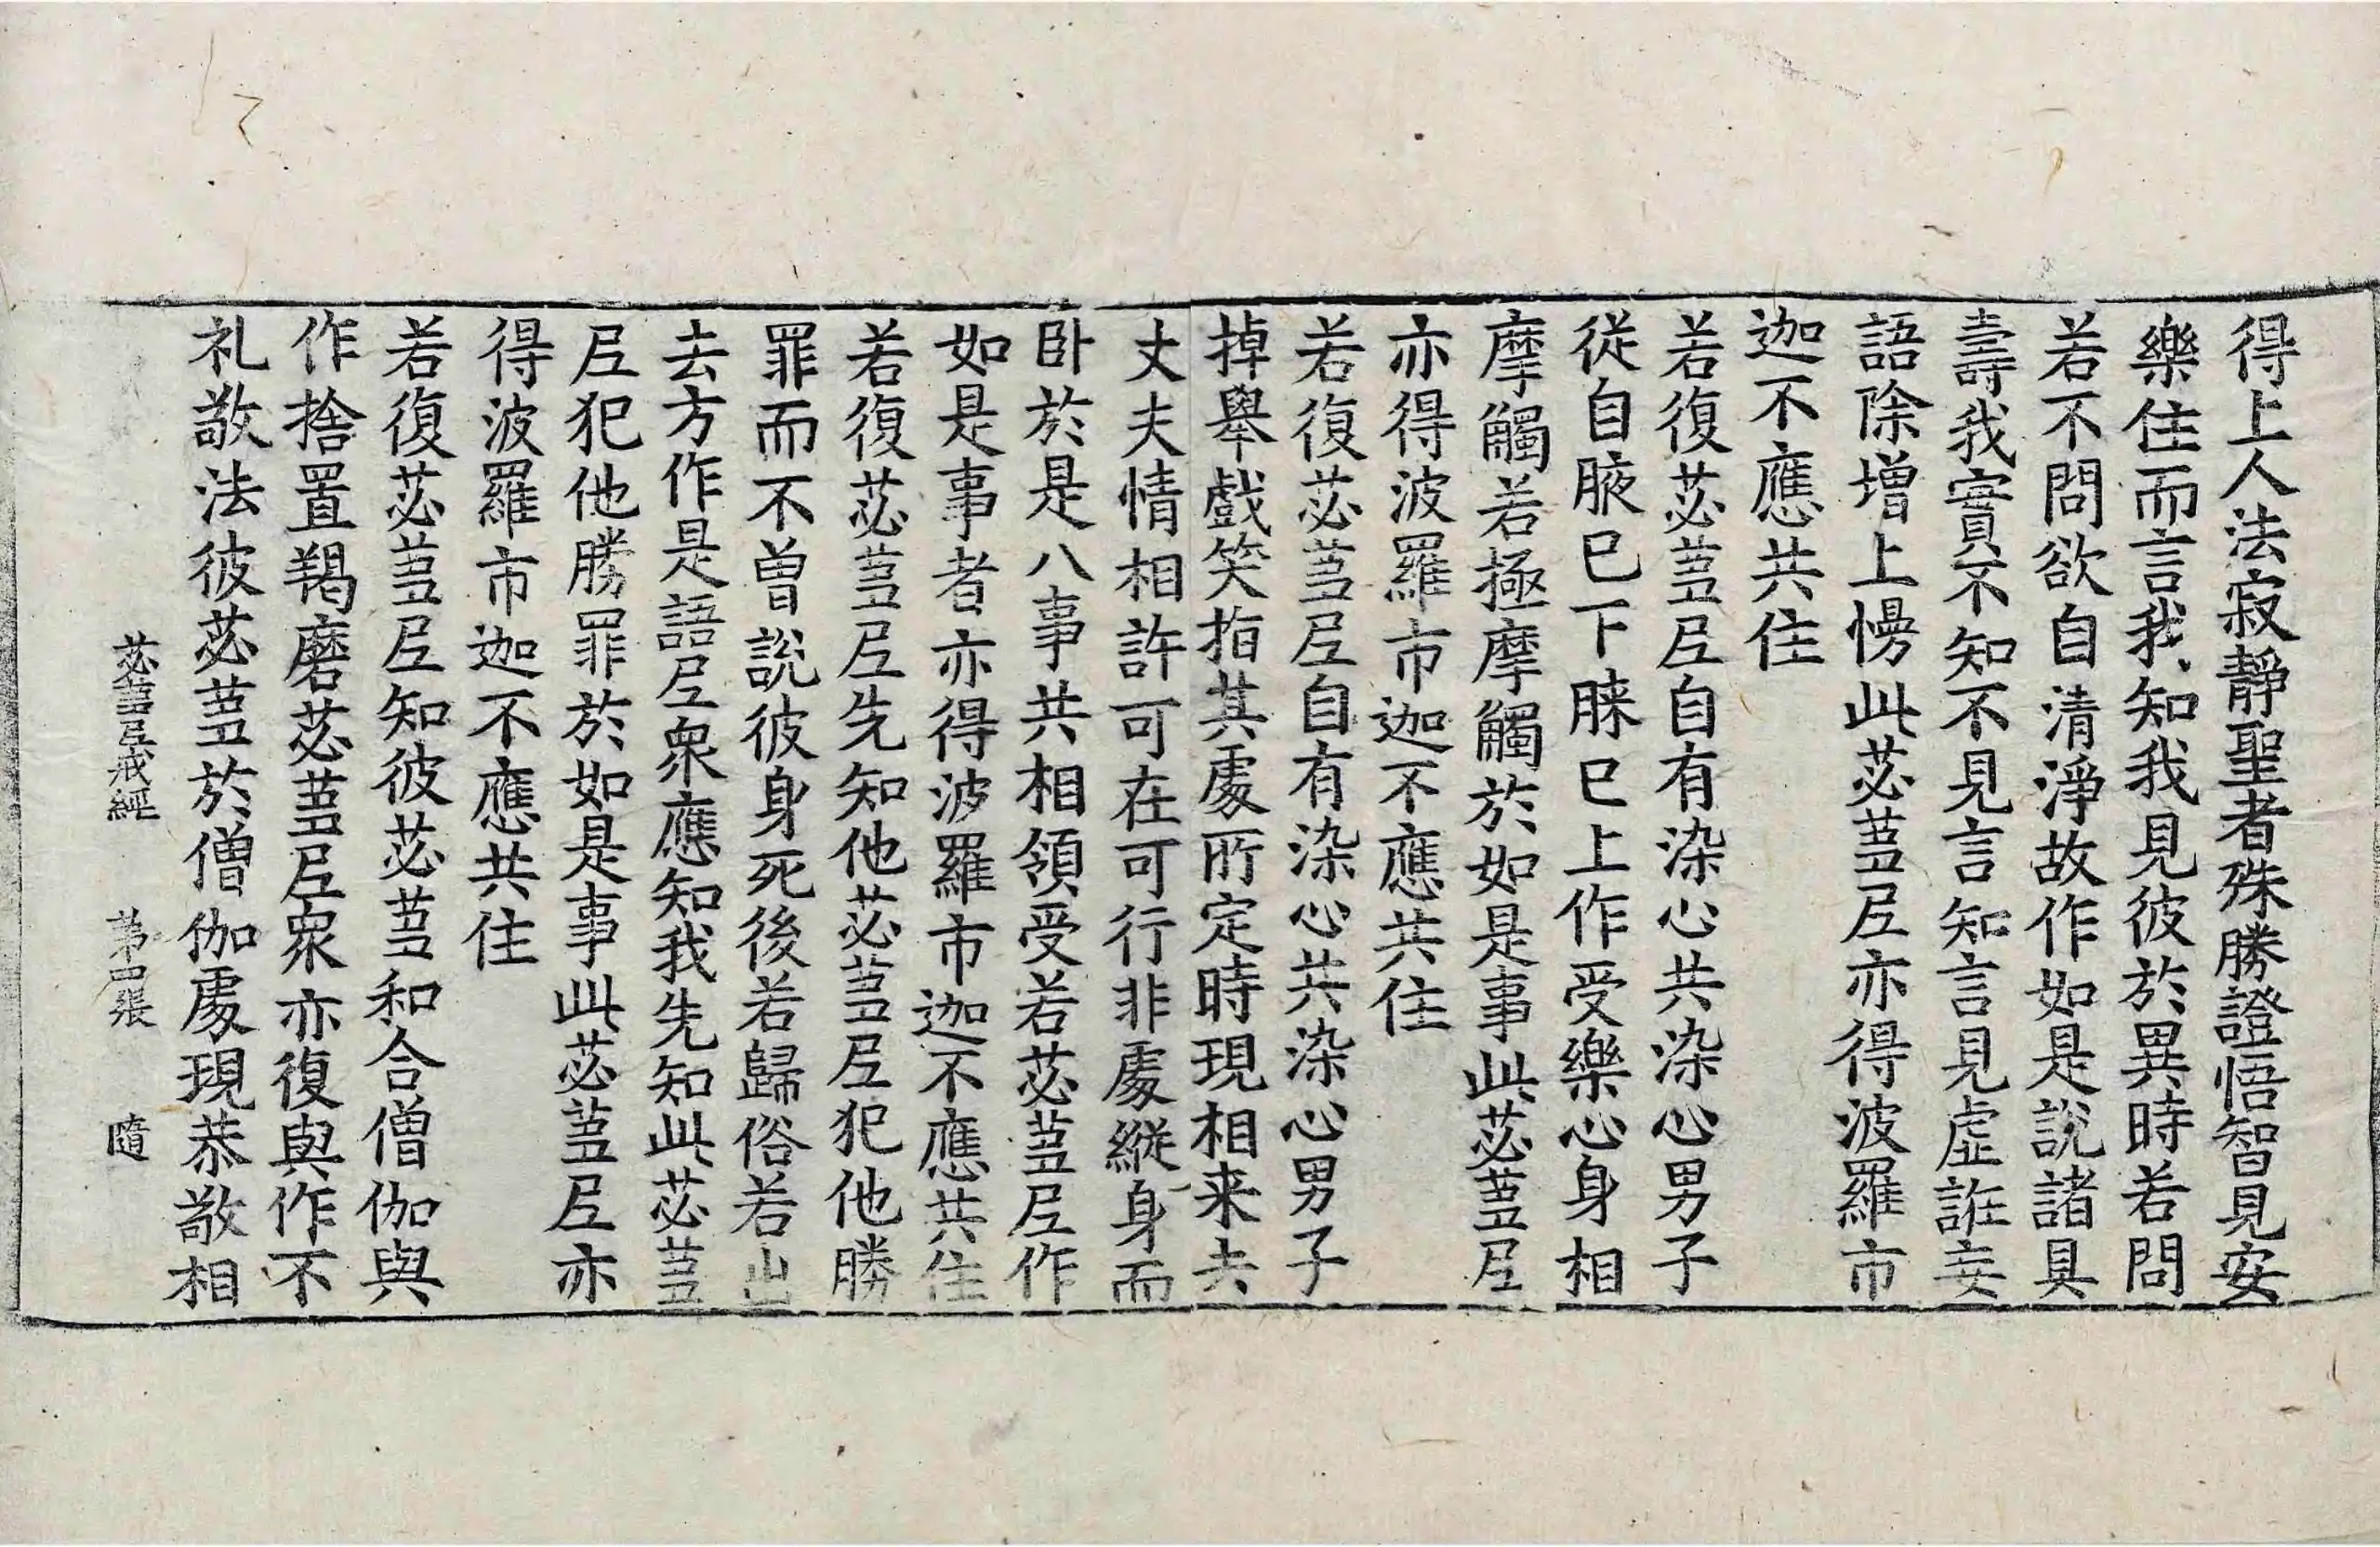 得上人法寂靜聖者殊勝證悟智見安
樂住而言我知我見彼於異時若問
若不問欲自清淨故作如是說諸具
壽我實不知不見言知言見虛誑妄
語除增上慢此苾蒭尼亦得波羅市
迦不應共住
若復苾蒭尼自有染心共染心男子
從自腋已下䏶已上作受樂心身相
摩觸若極摩觸於如是事此苾蒭尼
亦得波羅市迦不應共住
若復苾蒭尼自有染心共染心男子
掉舉戲笑指其處所定時現相来去
丈夫情相許可在可行非處縱身而
卧於是八事共相領受若苾蒭尼作
如是事者亦得波羅市迦不應共住
若復苾蒭尼先知他苾蒭尼犯他勝
罪而不曾說彼身死後若歸俗若出
去方作是語尼衆應知我先知此苾蒭
尼犯他勝罪於如是事此苾蒭尼亦
得波羅市迦不應共住
若復苾蒭尼知彼苾蒭和合僧伽與
作捨置羯磨苾蒭尼衆亦復與作不
礼敬法彼苾蒭於僧伽處現恭敬相
苾蒭尼戒經 第四張 隨